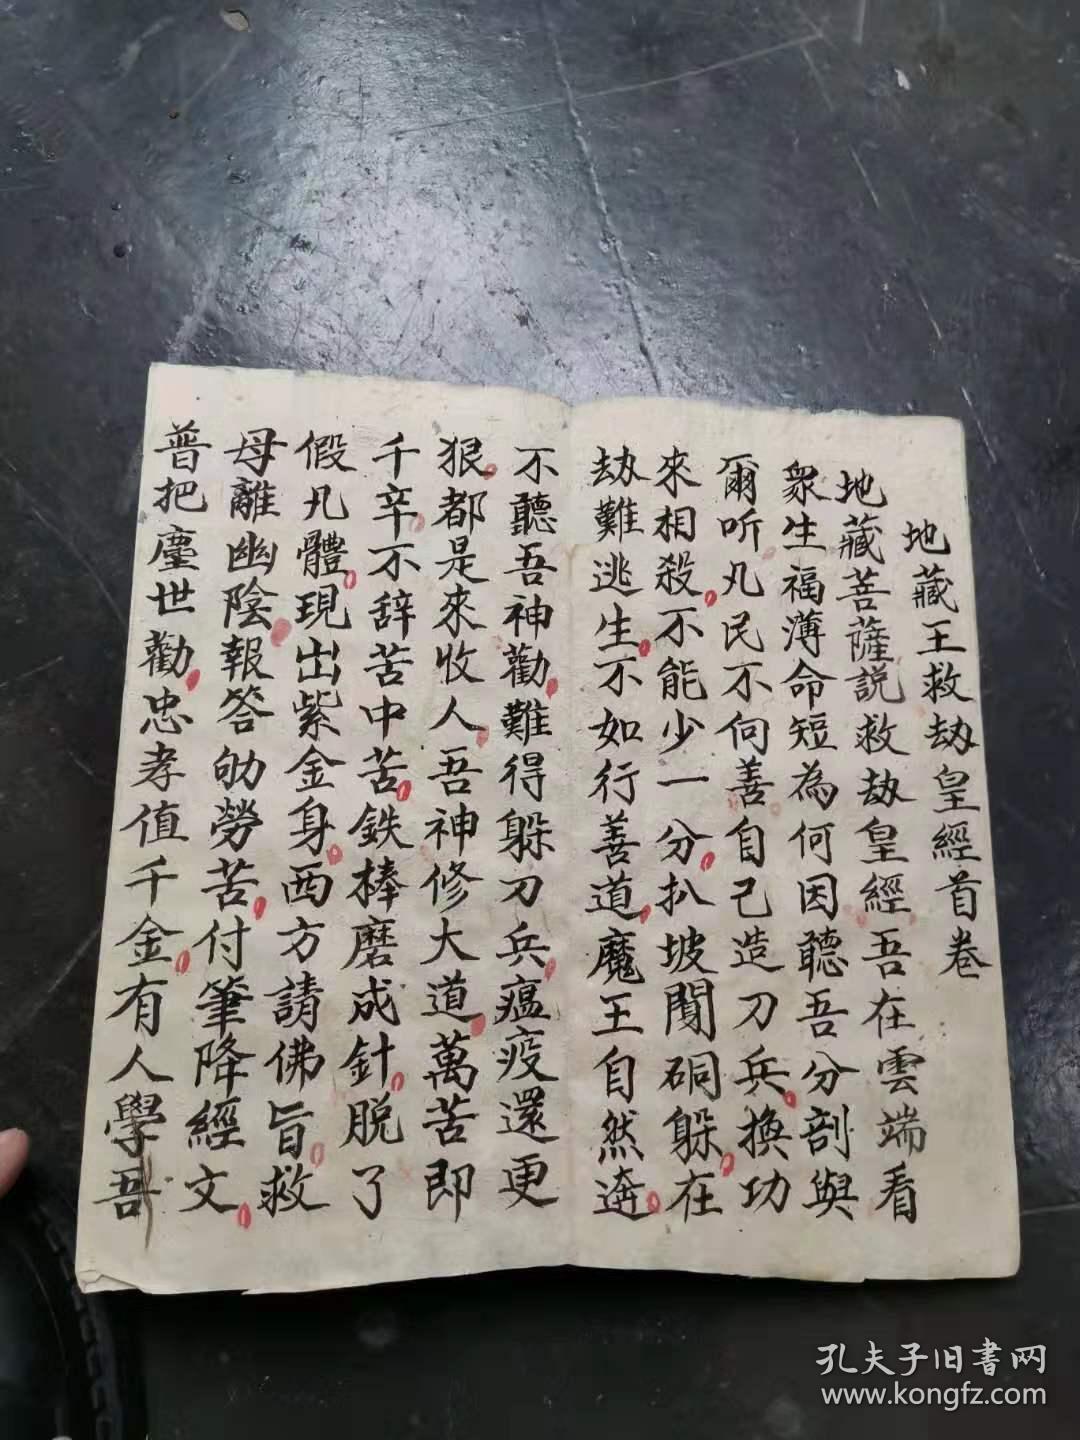 地藏王救劫皇經首卷
地藏菩薩説救劫皇經吾在雲端看
衆生福薄命短為何因聽吾分剖與
爾听凡民不向善自己造刀兵換功
來相殺不能少一分扒坡閒硐躲在
劫難逃生不如行善道魔王自然遊
不聽吾神勸難得躲刀兵瘟疫還更
狠都是來收人吾神修大道萬苦即
千辛不辞苦中苦鉄棒磨成針脱了
假凡體現出紫金身西方請佛旨救
母離幽陰報答劬勞苦付筆降經文
普把塵世勸忠孝值千金有人學吾
孔夫子旧書网
www.kongfz.com